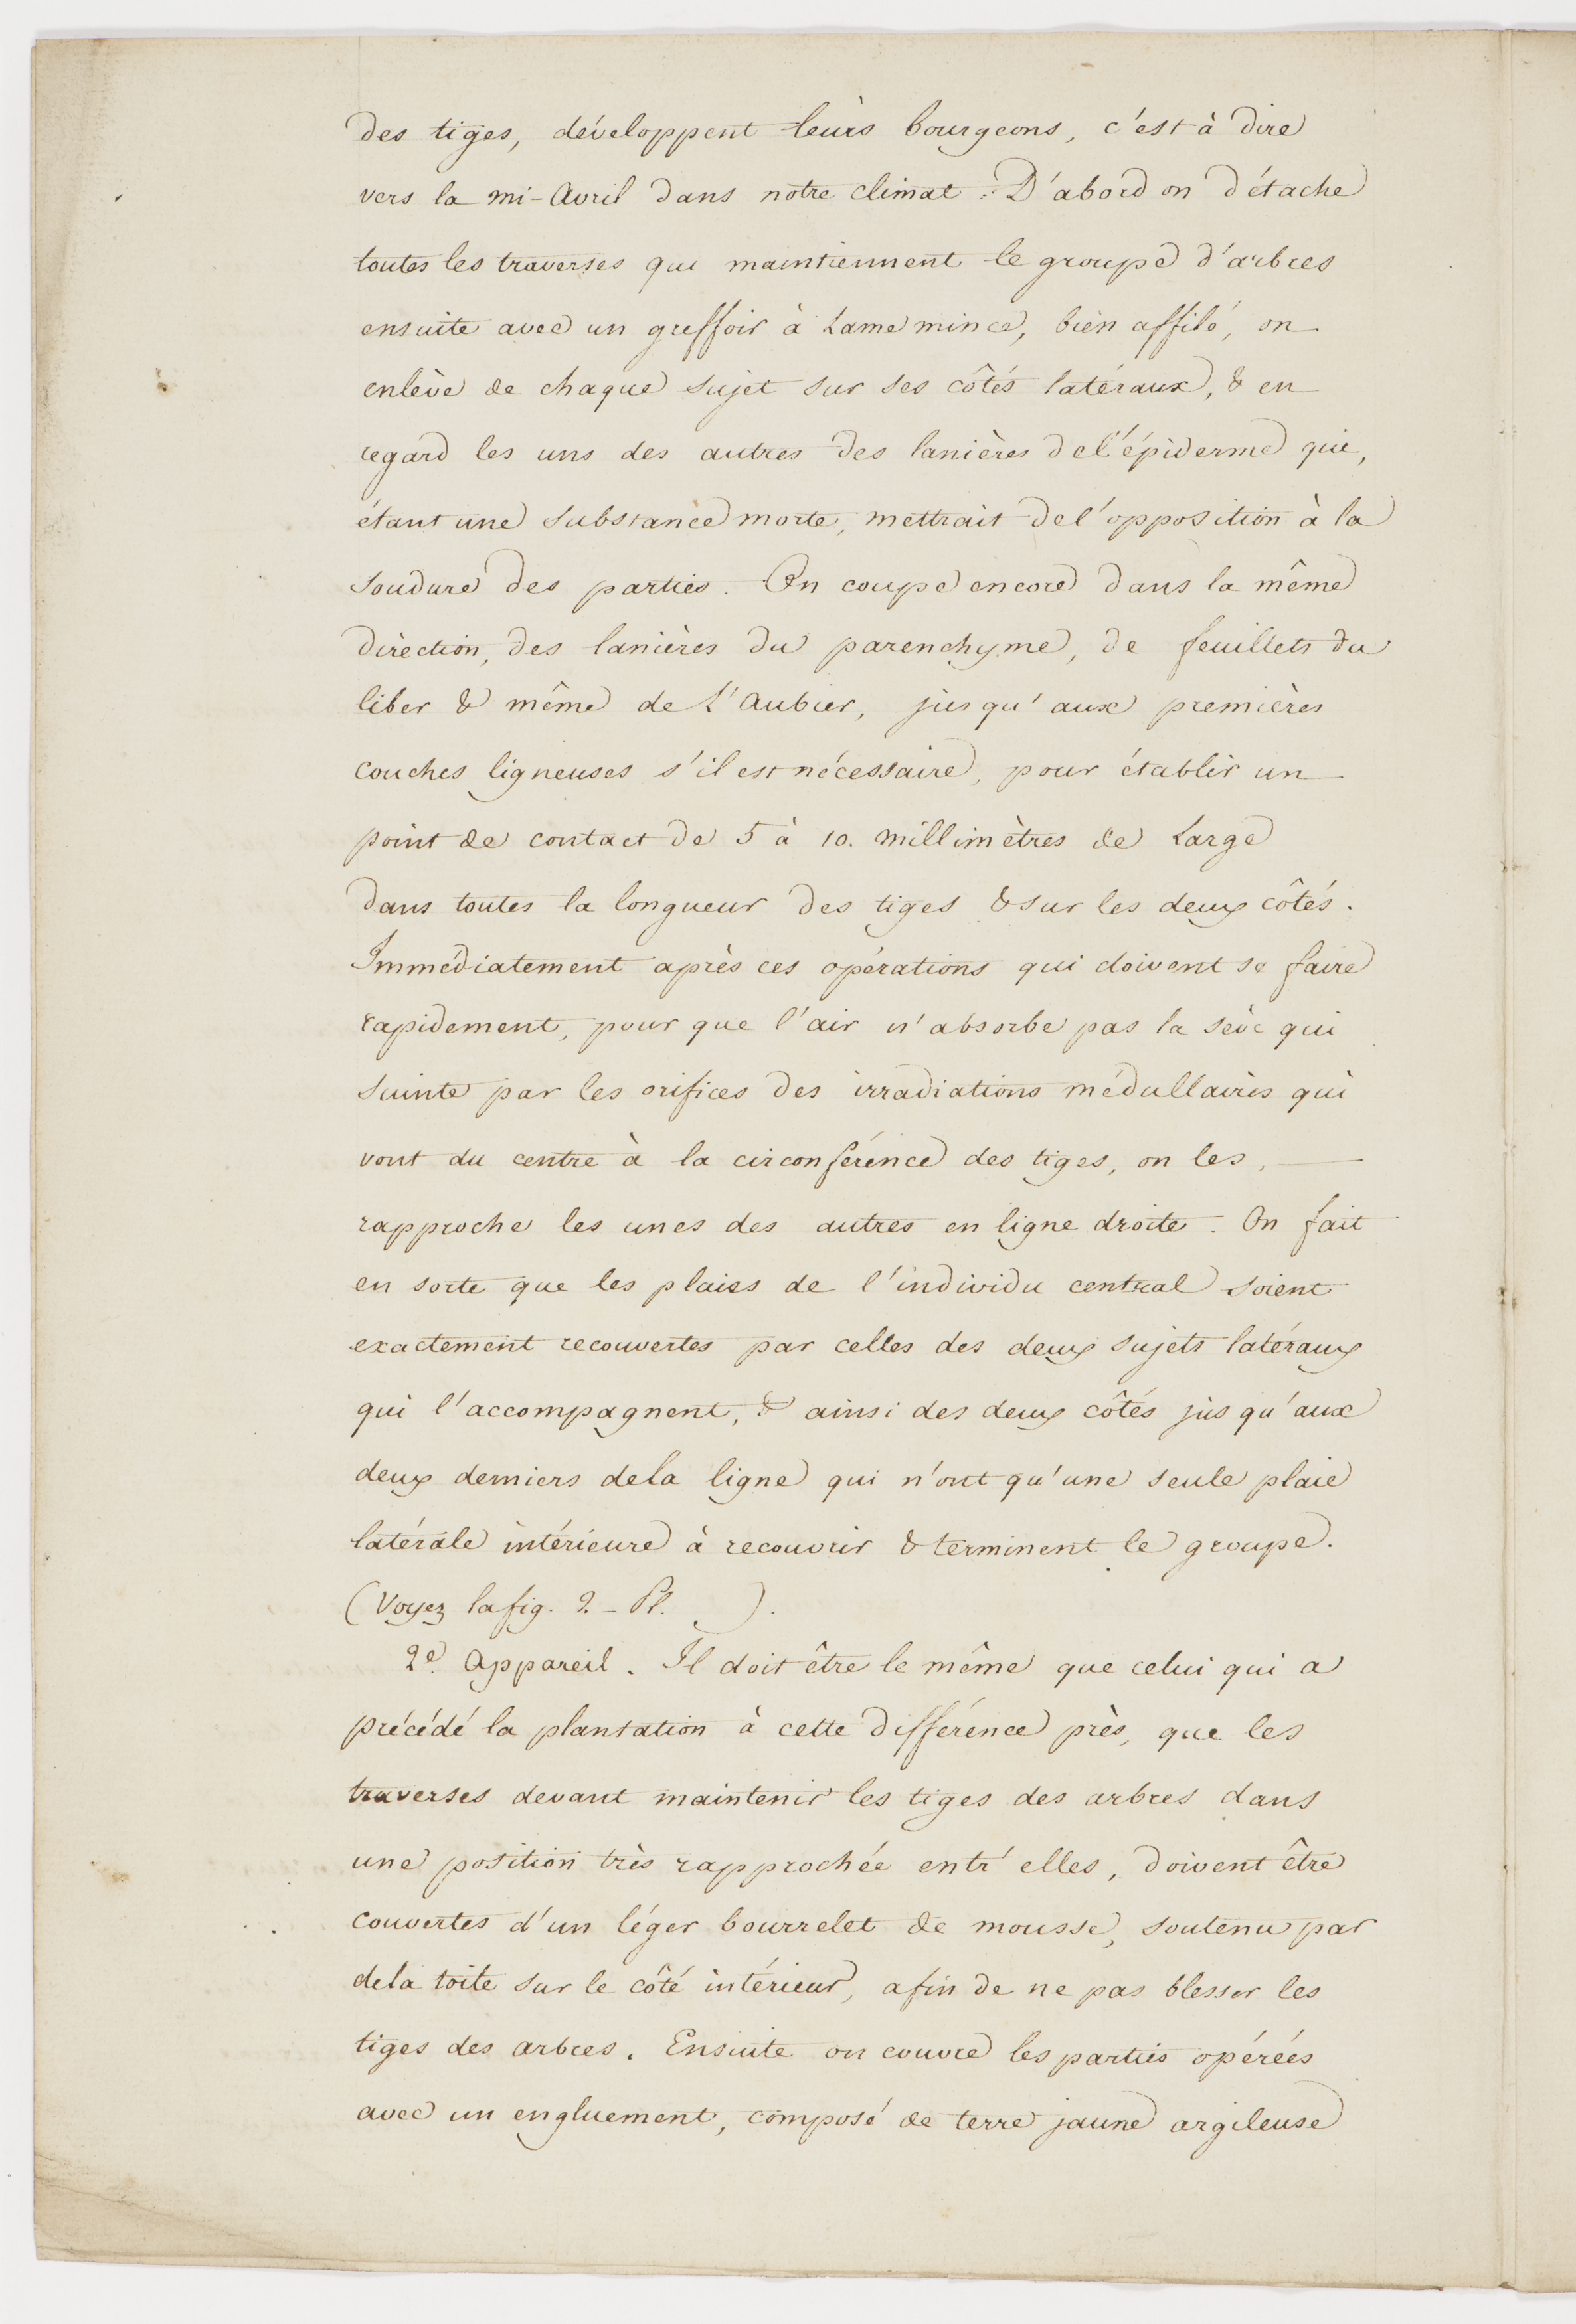 des tiges, développent leurs bourgeons, c'est à dire
vers la mi-Avril dans notre climat. D'abord on détache
toutes les traverses qui maintiennent le groupe d'arbres
ensuite avec un greffoir à Lame mince, bien affilé, on
enlève de chaque sujet sur ses côtés latéraux, & en
regard les uns des autres des lanières de l'épiderme qui,
étant une substance morte, mettrait de l'opposition à la
soudure des parties. On coupe encore dans la même
direction, des lanières du parenchyme, de feuillets du
liber & même de L'Aubier, jusqu'aux premières
couches ligneuses s'il est nécessaire, pour établir un
point de contact de 5 à 10. millimètres de Large
dans toutes la longueur des tiges & sur les deux côtés.
Immédiatement après ces opérations qui doivent se faire
rapidement, pour que l'air n'absorbe pas la sève qui
suinte par les orifices des irradiations médullaires qui
vont du centre à la circonférence des tiges, on les,
rapproche les unes des autres en ligne droite. On fait
en sorte que les plaies de l'individu central soient
exactement recouvertes par celles des deux sujets latéraux
qui l'accompagnent, & ainsi des deux côtés jusqu'aux
deux derniers de la ligne qui n'ont qu'une seule plaie
latérale intérieure à recouvrir & terminent le groupe.
(Voyez la fig. 2. - Pl. ).
2e. Appareil. Il doit être le même que celui qui a
précédé la plantation à cette différence près, que les
traverses devant maintenir les tiges des arbres dans
une position très rapprochée entr'elles, doivent être
couvertes d'un léger bourrelet de mousse, soutenu par
de la toile sur le côté intérieur, afin de ne pas blesser les
tiges des arbres. Ensuite on couvre les parties opérées
avec un engluement, composé de terre jaune argileuse